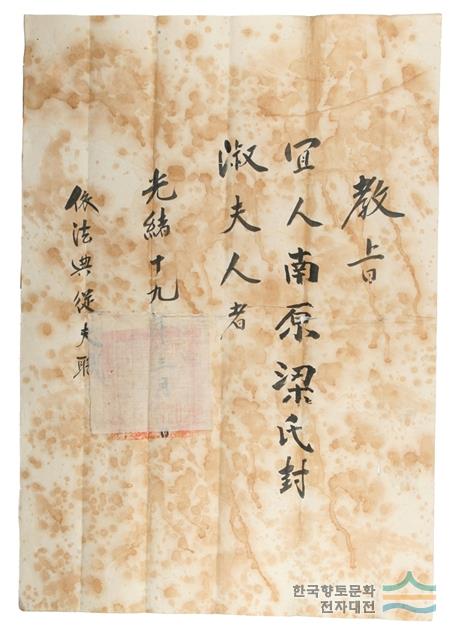 教旨
宜人南原梁氏封
淑夫人者
光緖十九年三月 日
依法典從夫職
한국향토문화
전자대전